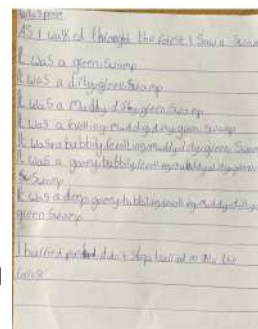 AS I walked throught the forest I Saw a Swam
It was a green Swamp
It was a dirty green Swamp
It was a Muddy dirty green Swamp
It was a muddy dirty green Swamp
It was a bubbily muddy dirty green Swamp
It was a gooey bubbily muddy dirty green
Swamp
It was a deep gooey bubbling muddy dirty
green Swamp
I hurried didn't stop I hurried on the
forest